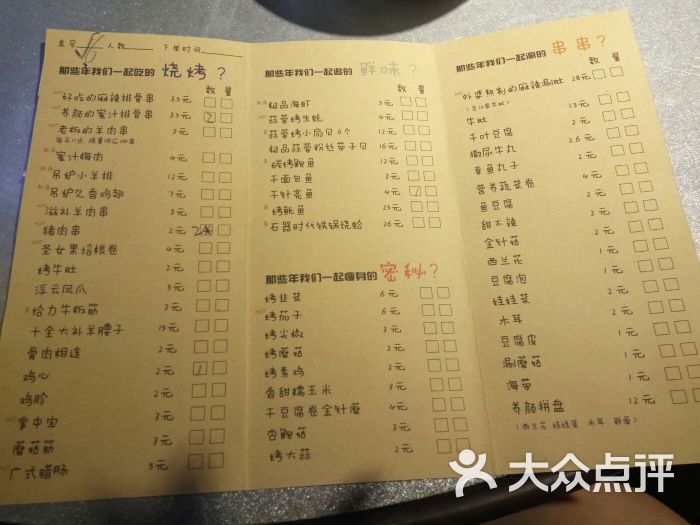 桌号 人数 下单时间
那些年我们一起吃的 烧烤?
数 量
好吃的麻辣排骨串 3.5元
养颜的蜜汁排骨串 3.5元 2
老板的羊肉串 3元
蜜汁梅肉 4元
吊炉小羊排 12元
吊炉久香鸡翅 7元
滋补羊肉串 3元
猪肉串 2元
圣女果培根卷 4元
烤牛肚 2元
浮云凤爪 5元
给力牛板筋 3元
十全大补羊腰子 15元
骨肉相连 2元
鸡心 2元 1
鸡胗 2元
掌中宝 3元
蘑菇筋 3元
广式腊肠 5元
那些年我们一起追的 鲜味?
极品海虾 5元
蒜蓉烤生蚝 4元
蒜蓉烤小扇贝6个 12元
极品蒜蓉粉丝带子贝 16元
碳烤鲍鱼
干面包鱼 3元
干针亮鱼 4元
烤鱿鱼 25元
石器时代铁锅烧蛤 26元
那些年我们一起瘦身的 密秘?
烤韭菜 6元
烤茄子 6元
烤尖椒 3元
烤蘑菇 4元
烤素鸡
香甜糯玉米 3元
干豆腐卷金针蘑 4元
杏鲍菇 3元
烤大蒜 2元
那些年我们一起涮的 串串?
数 量
外婆秘制的麻辣涮肚 28元
牛肚 1.5元
千叶豆腐 2元
撒尿牛丸 2.6元
章鱼丸子 2元
营养蔬菜卷 2元
鱼豆腐 2元
甜不辣 2元
金针菇 2元
西兰花 1元
豆腐泡 2元
娃娃菜 1元
木耳 2元
豆腐皮 1元
涮蘑菇 1元
海带 1元
养颜拼盘 12元
(西兰花 娃娃菜 木耳 鲜蘑)
大众点评